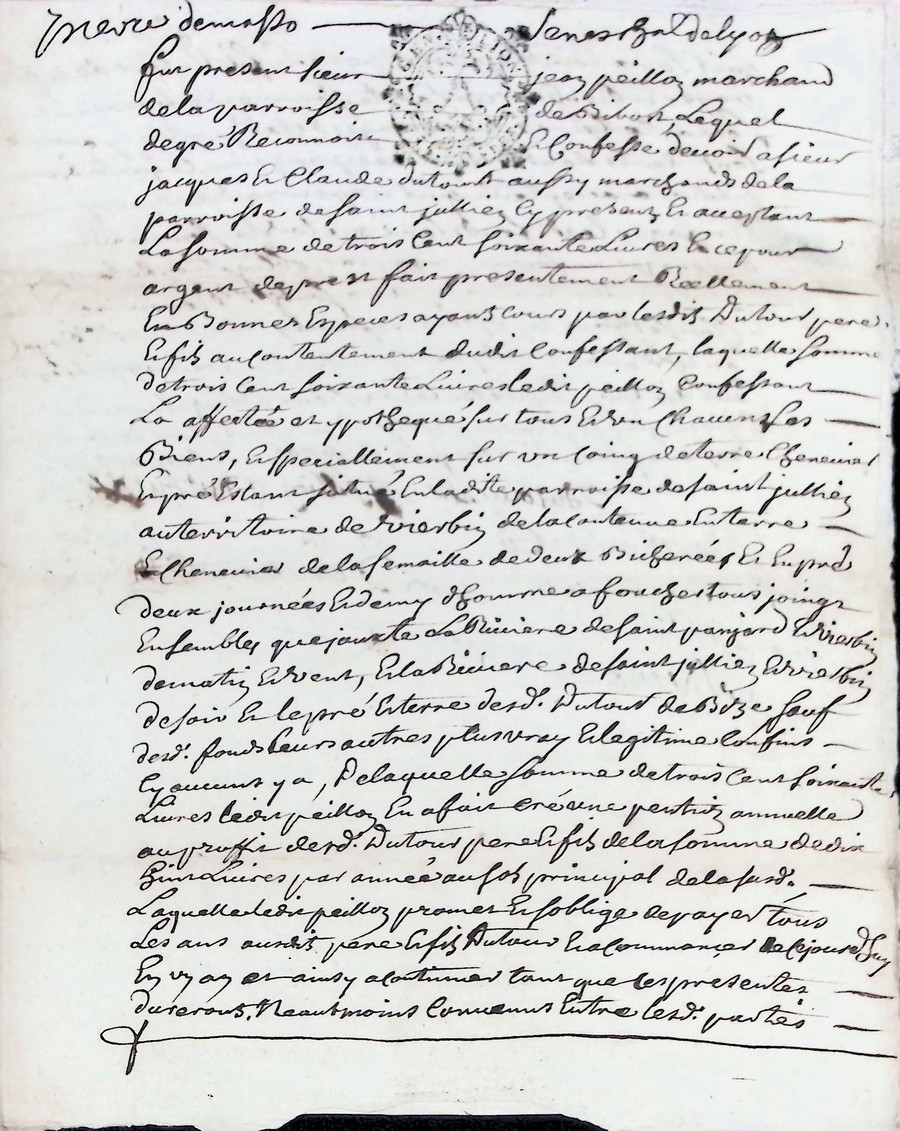 pierre demasso Senechal de lyon
fut present sieur jean peillon marchand
de la parroisse de Bibost Lequel
de gré Reconnois Et Confesse devoir a sieur
jacques Et Claude dutour aussy marchands de la
parroisse de saint jullien Cy presents Et acceptant
La somme de trois Cent soixante Livres Et ce pour
argent de prest fait presentement Réellement
En Bonnes Especes ayants cours par lesdits Dutour pere
Et fils au Contentement dudit Confessant, laquelle somme
de trois Cent soixante Livres ledit peillon Confessant
La affectée et ypothequé sur tous Et un Chacuns ses
Biens, Et speciallement sur un Coing de terre Chenevier
Et pré Estant situé En ladite parroisse de saint jullien
au territoire de vierbin de la Contenue En terre
Et Chenevier de la semaille de deux Bicherées Et En pré
deux journées Et demy d'homme a faucher tous joings
Ensembles que jouxte La Riviere de saint Et vierbin
de matin Et vent, Et la Riviere de saint jullien Et vierbin
de soir Et le pré Et terre desd. Dutour de Bize sauf
desd. fonds Leurs autres plus vray Et legitime Confins
Cy aucuns y a, De laquelle somme de trois Cent soixante
Livres ledit peillon En a fait Créé une pention annuelle
au proffit desd. Dutour pere Et fils de la somme de dix
huit Livres par année au sol principal de la susd.
Laquelle ledit peillon promet Et s'oblige de payer tous
Les ans ausdits pere Et fils Dutour Et a Commancer de Cejourd'huy
En un an et ainsy a Continuer tant que les presentes
dureronts. Neautmoins Convenus Entre lesd. parties